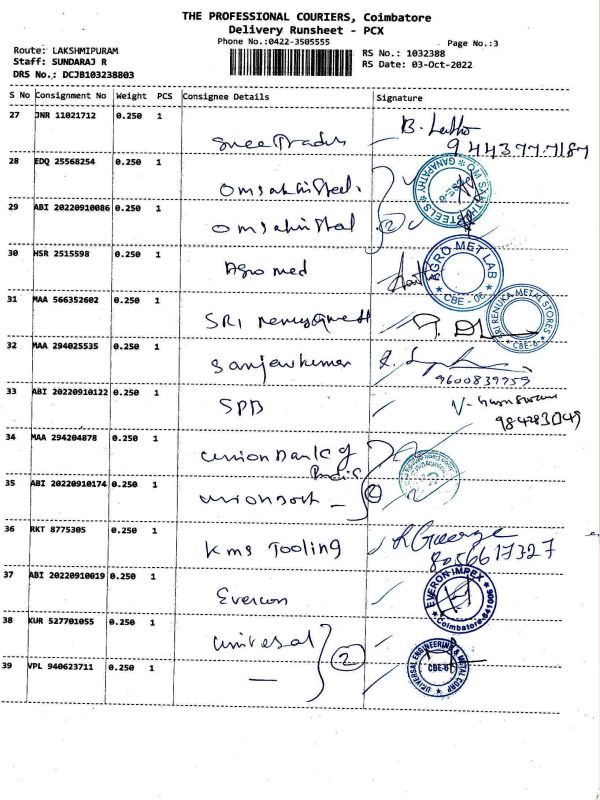 THE PROFESSIONAL COURIERS, Coimbatore
Delivery Runsheet - PCX
Phone No.:0422-3505555
Page No.:3
Route: LAKSHMIPURAM
RS No.: 1032388
Staff: SUNDARAJ R
RS Date: 03-Oct-2022
DRS No.: DCJB103238803
S No Consignment No Weight PCS Consignee Details Signature
27 JNR 11021712 0.250 1
Sree Traders B.
28 EDQ 25568254 0.250 1
Omsakthisteel GANAPATHY
29 ABI 20220910086 0.250 1
Omsakthisteel 2
30 HSR 2515598 0.250 1
Agro med AGRO MET LAB CBE - 06
31 MAA 566352602 0.250 1
SRI SRI RENUKA METAL STORES CBE-6
32 MAA 294025535 0.250 1
Sanjeevkumar
9600839759
33 ABI 20220910122 0.250 1
SPB V-
34 MAA 294204878 0.250 1
Union Bank of
India
35 ABI 20220910174 0.250 1
36 RKT 8775305 0.250 1
Kms Tooling George
8056617327
37 ABI 20220910019 0.250 1
Evercon EVERON IMPEX Coimbatore-641006
38 KUR 527701055 0.250 1
Universal 2
39 VPL 940623711 0.250 1
UNIVERSAL ENGINEERING & METAL CORP CBE-6